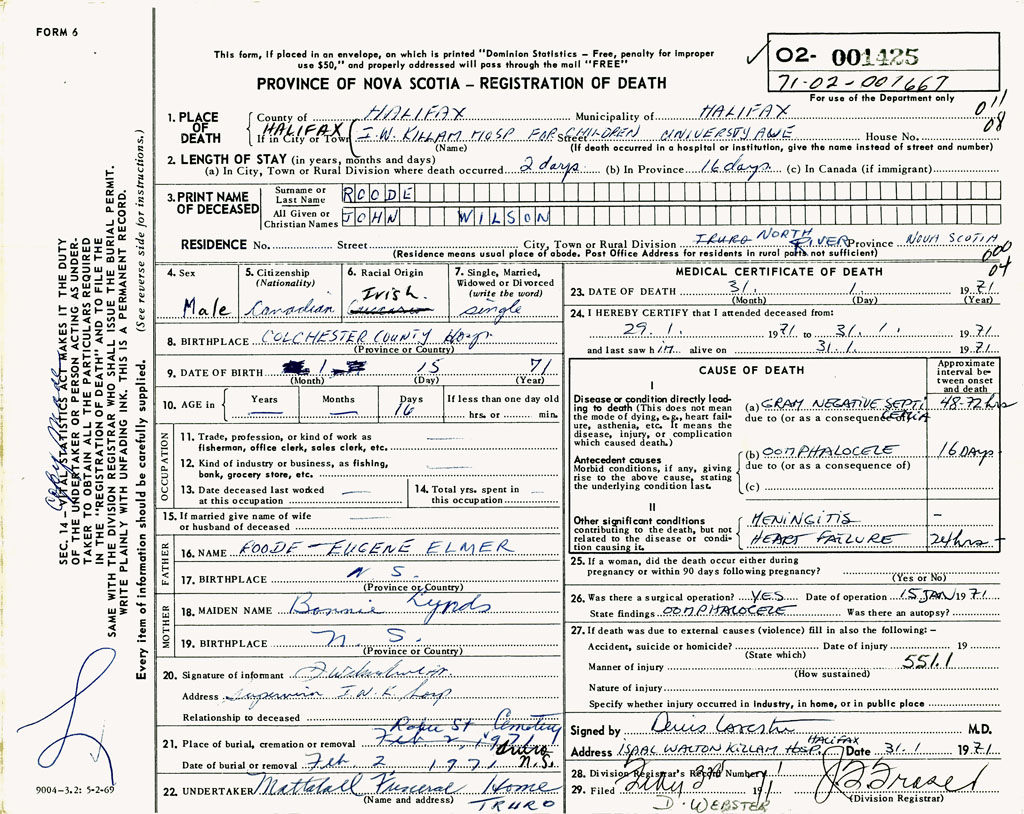 FORM 6
This form, if placed in an envelope, on which is printed "Dominion Statistics — Free, penalty for improper
use $50," and properly addressed will pass through the mail "FREE"
PROVINCE OF NOVA SCOTIA — REGISTRATION OF DEATH
02- 001425
71-02-001667
For use of the Department only
011
08
1. PLACE OF DEATH
County of HALIFAX Municipality of HALIFAX
HALIFAX If in City or Town I.W. KILLAM HOSP FOR CHILDREN Street UNIVERSTY AVE House No.
(Name) (If death occurred in a hospital or institution, give the name instead of street and number)
2. LENGTH OF STAY (in years, months and days)
(a) In City, Town or Rural Division where death occurred 2 days (b) In Province 16 days (c) In Canada (if immigrant)
3. PRINT NAME OF DECEASED
Surname or Last Name ROODE
All Given or Christian Names JOHN WILSON
RESIDENCE No. Street City, Town or Rural Division TRURO NORTH RIVER Province NOVA SCOTIA
(Residence means usual place of abode. Post Office Address for residents in rural parts not sufficient)
000
04
4. Sex Male
5. Citizenship (Nationality) Canadian
6. Racial Origin Irish.
7. Single, Married, Widowed or Divorced (write the word) single
8. BIRTHPLACE COLCHESTER COUNTY Hosp.
(Province or Country)
9. DATE OF BIRTH 1 15 71
(Month) (Day) (Year)
10. AGE in Years Months Days 16 If less than one day hrs. or min.
OCCUPATION
11. Trade, profession, or kind of work as fisherman, office clerk, sales clerk, etc.
12. Kind of industry or business, as fishing, bank, grocery store, etc.
13. Date deceased last worked at this occupation
14. Total yrs. spent in this occupation
15. If married give name of wife or husband of deceased
FATHER
16. NAME ROODE — EUGENE ELMER
17. BIRTHPLACE N S.
(Province or Country)
MOTHER
18. MAIDEN NAME Bonnie Lynds
19. BIRTHPLACE N. S.
(Province or Country)
20. Signature of informant
Address Supervisor I.W.K Hosp
Relationship to deceased
21. Place of burial, cremation or removal Robie St Cemetery Feb 2, 1971 Truro N.S.
Date of burial or removal Feb. 2 1971
22. UNDERTAKER Mattatall Funeral Home
(Name and address) TRURO
MEDICAL CERTIFICATE OF DEATH
23. DATE OF DEATH 31. 1. 1971
(Month) (Day) (Year)
24. I HEREBY CERTIFY that I attended deceased from:
29. 1. 1971 to 31. 1. 1971
and last saw him alive on 31.1. 1971
CAUSE OF DEATH
Approximate interval between onset and death
I
Disease or condition directly leading to death (This does not mean the mode of dying, e.g., heart failure, asthenia, etc. It means the disease, injury, or complication which caused death.)
(a) GRAM NEGATIVE SEPTICEMIA 48-72 hrs
due to (or as a consequence of)
Antecedent causes
Morbid conditions, if any, giving rise to the above cause, stating the underlying condition last.
(b) OOMPHALOCELE 16 Days
due to (or as a consequence of)
(c)
II
Other significant conditions contributing to the death, but not related to the disease or condition causing it.
MENINGITIS –
HEART FAILURE 24hrs –
25. If a woman, did the death occur either during pregnancy or within 90 days following pregnancy?
(Yes or No)
26. Was there a surgical operation? YES Date of operation 15 JAN 1971
State findings OOMPHALOCELE Was there an autopsy?
27. If death was due to external causes (violence) fill in also the following: —
Accident, suicide or homicide? Date of injury 19
(State which)
Manner of injury 551.1
(How sustained)
Nature of injury
Specify whether injury occurred in industry, in home, or in public place
Signed by M.D.
Address ISAAC WALTON KILLAM HOSP. HALIFAX Date 31.1 1971
28. Division Registrar's Record Number
29. Filed Feby 2nd 1971
D. WEBSTER
(Division Registrar)
SEC. 14 — VITAL STATISTICS ACT MAKES IT THE DUTY
OF THE UNDERTAKER OR PERSON ACTING AS UNDER-
TAKER TO OBTAIN ALL THE PARTICULARS REQUIRED
IN THE "REGISTRATION OF DEATH" AND TO FILE THE
SAME WITH THE DIVISION REGISTRAR WHO SHALL ISSUE THE BURIAL PERMIT.
WRITE PLAINLY WITH UNFADING INK. THIS IS A PERMANENT RECORD.
Every item of information should be carefully supplied. (See reverse side for instructions.)
9004-3.2: 5-2-69